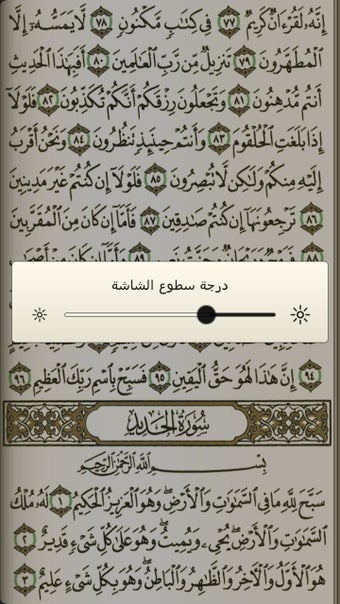 إِنَّهُۥ لَقُرْءَانٌ كَرِيمٌ ٧٧ فِى كِتَٰبٍ مَّكْنُونٍ ٧٨ لَّا يَمَسُّهُۥٓ إِلَّا
ٱلْمُطَهَّرُونَ ٧٩ تَنزِيلٌ مِّن رَّبِّ ٱلْعَٰلَمِينَ ٨٠ أَفَبِهَٰذَا ٱلْحَدِيثِ
أَنتُم مُّدْهِنُونَ ٨١ وَتَجْعَلُونَ رِزْقَكُمْ أَنَّكُمْ تُكَذِّبُونَ ٨٢ فَلَوْلَآ
إِذَا بَلَغَتِ ٱلْحُلْقُومَ ٨٣ وَأَنتُمْ حِينَئِذٍ تَنظُرُونَ ٨٤ وَنَحْنُ أَقْرَبُ
إِلَيْهِ مِنكُمْ وَلَٰكِن لَّا تُبْصِرُونَ ٨٥ فَلَوْلَآ إِن كُنتُمْ غَيْرَ مَدِينِينَ
٨٦ تَرْجِعُونَهَآ إِن كُنتُمْ صَٰدِقِينَ ٨٧ فَأَمَّآ إِن كَانَ مِنَ ٱلْمُقَرَّبِينَ
٨٨
درجة سطوع الشاشة
٩٤ إِنَّ هَٰذَا لَهُوَ حَقُّ ٱلْيَقِينِ ٩٥ فَسَبِّحْ بِٱسْمِ رَبِّكَ ٱلْعَظِيمِ ٩٦
سُورَةُ الحَدِيدِ
بِسْمِ ٱللَّهِ ٱلرَّحْمَٰنِ ٱلرَّحِيمِ
سَبَّحَ لِلَّهِ مَا فِى ٱلسَّمَٰوَٰتِ وَٱلْأَرْضِ ۖ وَهُوَ ٱلْعَزِيزُ ٱلْحَكِيمُ ١ لَهُۥ مُلْكُ
ٱلسَّمَٰوَٰتِ وَٱلْأَرْضِ ۖ يُحْىِۦ وَيُمِيتُ ۖ وَهُوَ عَلَىٰ كُلِّ شَىْءٍ قَدِيرٌ ٢
هُوَ ٱلْأَوَّلُ وَٱلْءَاخِرُ وَٱلظَّٰهِرُ وَٱلْبَاطِنُ ۖ وَهُوَ بِكُلِّ شَىْءٍ عَلِيمٌ ٣